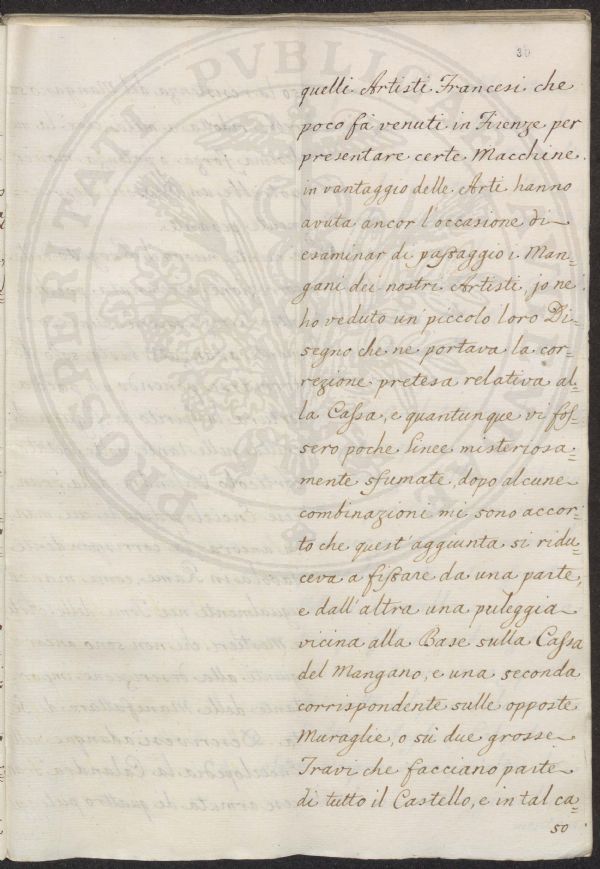 30
quelli Artisti Francesi che
poco fà venuti in Firenze per
presentare certe Macchine
in vantaggio delle Arti hanno
avuta ancor l'occasione di
esaminar di passaggio i Man=
gani dei nostri Artisti, jo ne
ho veduto un' piccolo loro Di=
segno che ne portava la cor=
rezione pretesa relativa al=
la Cassa, e quantunque vi fos=
sero poche linee misteriosa=
mente sfumate, dopo alcune
combinazioni mi sono accor=
to che quest' aggiunta si ridu=
ceva a fissare da una parte,
e dall' altra una puleggia
vicina alla Base sulla Cassa
del Mangano, e una seconda
corrispondente sulle opposte
Muraglie, o sù due grosse
Travi che facciano parte
di tutto il Castello, e in tal ca=
so
PROSPERITATI PUBLICAE